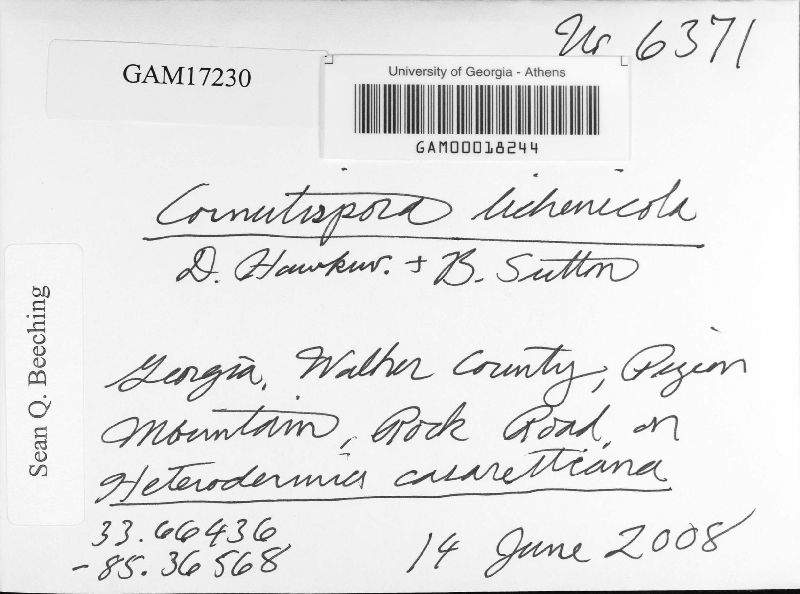 Nr 6371
GAM17230
University of Georgia - Athens
GAM00018244
Cornutispora lichenicola
D. Hawksw. + B. Sutton
Sean Q. Beeching
Georgia, Walker County, Pigeon
Mountain, Rock Road, on
Heterodermia casarettiana
33.66436,
-85.36568
14 June 2008